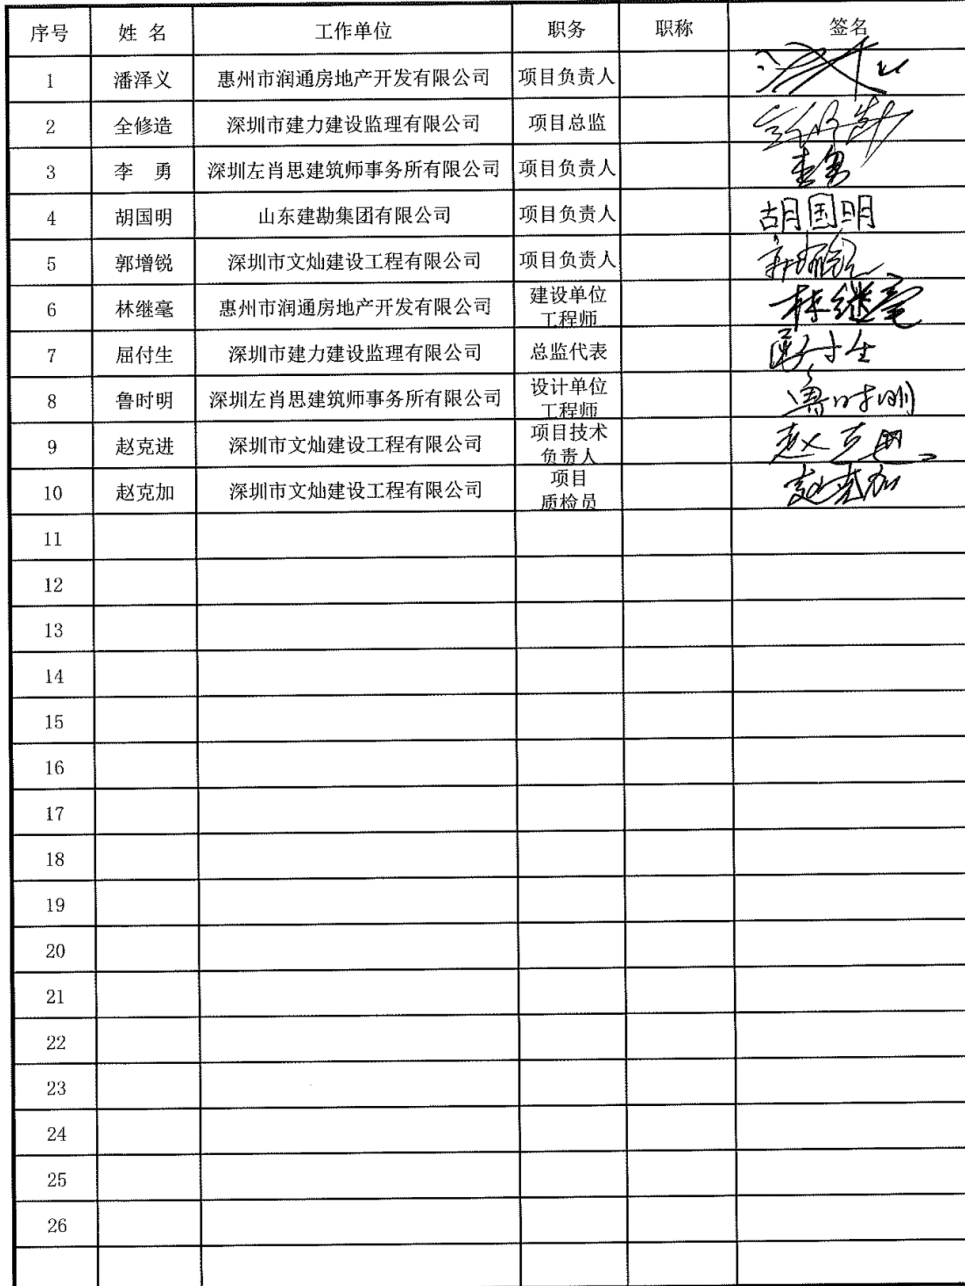 序号 姓 名 工作单位 职务 职称 签名
1 潘泽义 惠州市润通房地产开发有限公司 项目负责人
2 全修造 深圳市建力建设监理有限公司 项目总监 全修造
3 李 勇 深圳左肖思建筑师事务所有限公司 项目负责人 李勇
4 胡国明 山东建勘集团有限公司 项目负责人 胡国明
5 郭增锐 深圳市文灿建设工程有限公司 项目负责人 郭增锐
6 林继毫 惠州市润通房地产开发有限公司 建设单位 林继毫
工程师
7 屈付生 深圳市建力建设监理有限公司 总监代表 屈付生
8 鲁时明 深圳左肖思建筑师事务所有限公司 设计单位 鲁时明
工程师
9 赵克进 深圳市文灿建设工程有限公司 项目技术 赵克进
负责人
10 赵克加 深圳市文灿建设工程有限公司 项目 赵克加
质检员
11
12
13
14
15
16
17
18
19
20
21
22
23
24
25
26